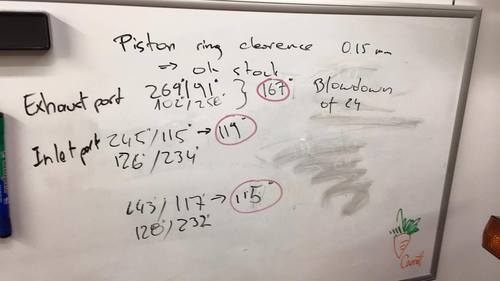 Piston ring clearence 0.15 mm
=> oh stock
Exhaust port 269°/91° } 167° Blowdown
102°/258° of 24
Inlet port 245°/115° → 119°
126°/234°
243°/117° → 115°
128°/232°
Carrot